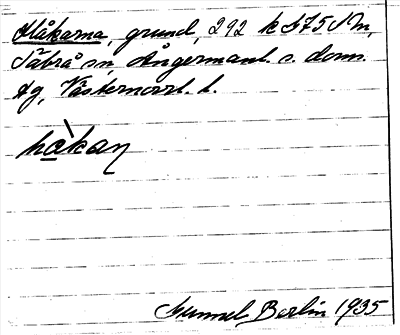 Håkarna, grund, 292 k 575 Nn,
Säbrå sn, Ångermanl. s. doms.
dg, Västernorrl. l.
hàkaɳ
Gunnel Berlin 1935